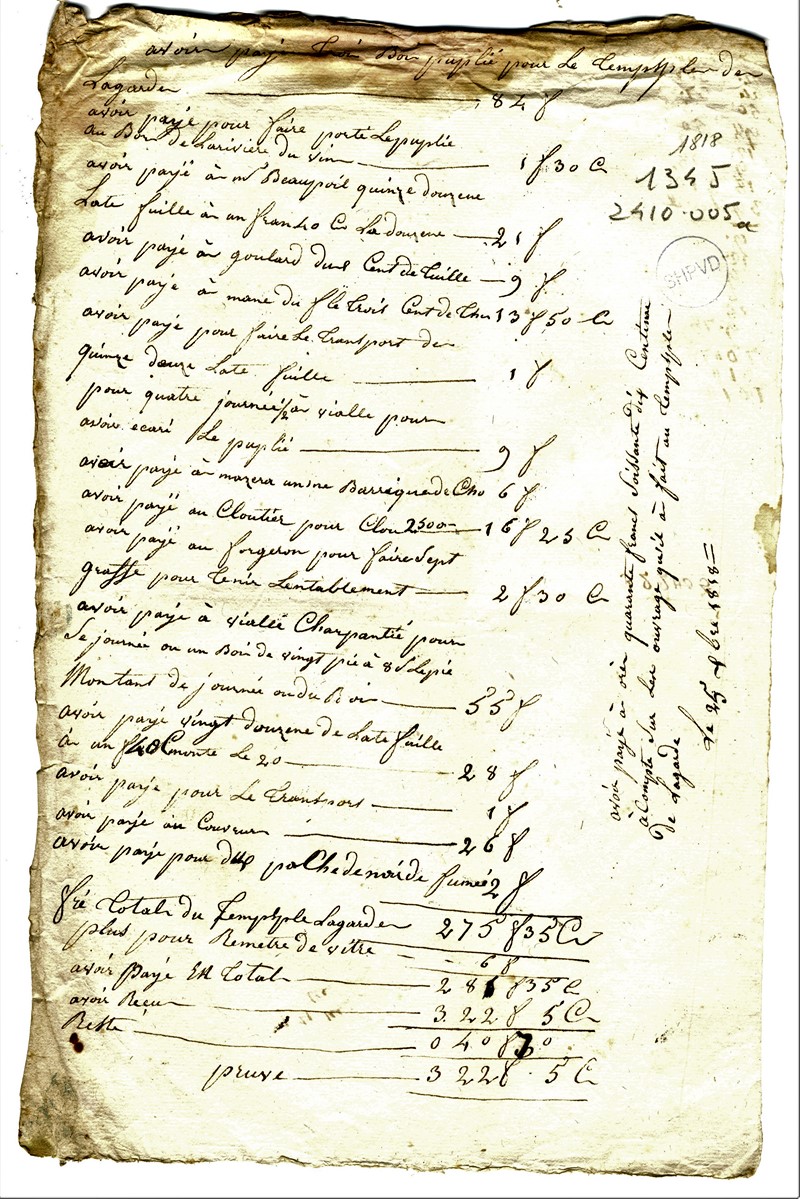 avoir payé Troi Boi puplié pour Le Tempple de
Lagarde 84 f
avoir payé pour faire porté Le puplie
au Bor de Larivière du vin 1 f 30 C
avoir payé à mr Beaupoil quinze douzene
Late fuille à un fran 40 C La douzene 21 f
avoir payé à goulard dus Cent de Tuille 9 f
avoir payé à mane du f le Trois Cent de Thu 13 f 50 C
avoir payé pour faire Le Transport de
quinze douze Late fuille 1 f
pour quatre journéé 1/2 à vialle pour
avoir ecaré Le puplié 9 f
avoir payé à mazera un ne Barrique de Cho 6 f
avoir payé au Cloutier pour Clou 2500 16 f 25 C
avoir payé au forgeron pour faire Sept
graffe pour Tenir Lentablement 2 f 30 C
avoir payé à viallé Charpantié pour
Se journée ou un Boi de vingt pié à 8 s Le pié
Montant de journée ou du Boi 55 f
avoir payé vingt douzene de Late fuille
à un f 40 C monte Le 20 28 f
avoir payé pour Le Transport 1 f
avoir payé au Couvreur 26 f
avoir payé pour du paChe de noir de fumée 2 f
fré Total du Tempple Lagarde 275 f 35 C
plus pour Remetre de vitre 6 f
avoir Payé EN Total 281 f 35 C
avoir Recu 322 f 5 C
Resté 040 f 70
preuve 322 f 5 C
1818
1345
2410.005a
SHPVD
avoir payé à quarante francs Soissante dix Centime
à Compte Sur Les ouvrage quil à fait au Tempple
de Lagarde
Le 25 bre 1818